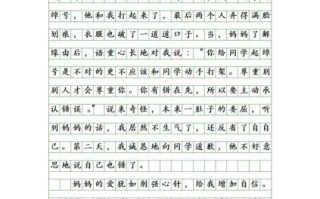 绰号，他和我打起来了，最后两个人弄得满脸
划痕，衣服也破了一道道口子。当，妈妈了解
缘由后，语重心长地对我说：“你给同学起绰
号是不对的更不应该和同学动手打架。尊重别
别人才会尊重你。你有错在先，所以要主动承
认错误。”说来奇怪，本来一肚子的委屈，听
到妈妈的话，我居然不生气了，还反省了自自
己。第二天，我诚恳地向同学道歉，他不好意
思地说自己也错了。
妈妈的爱犹如剂强心针，给我增加自信。